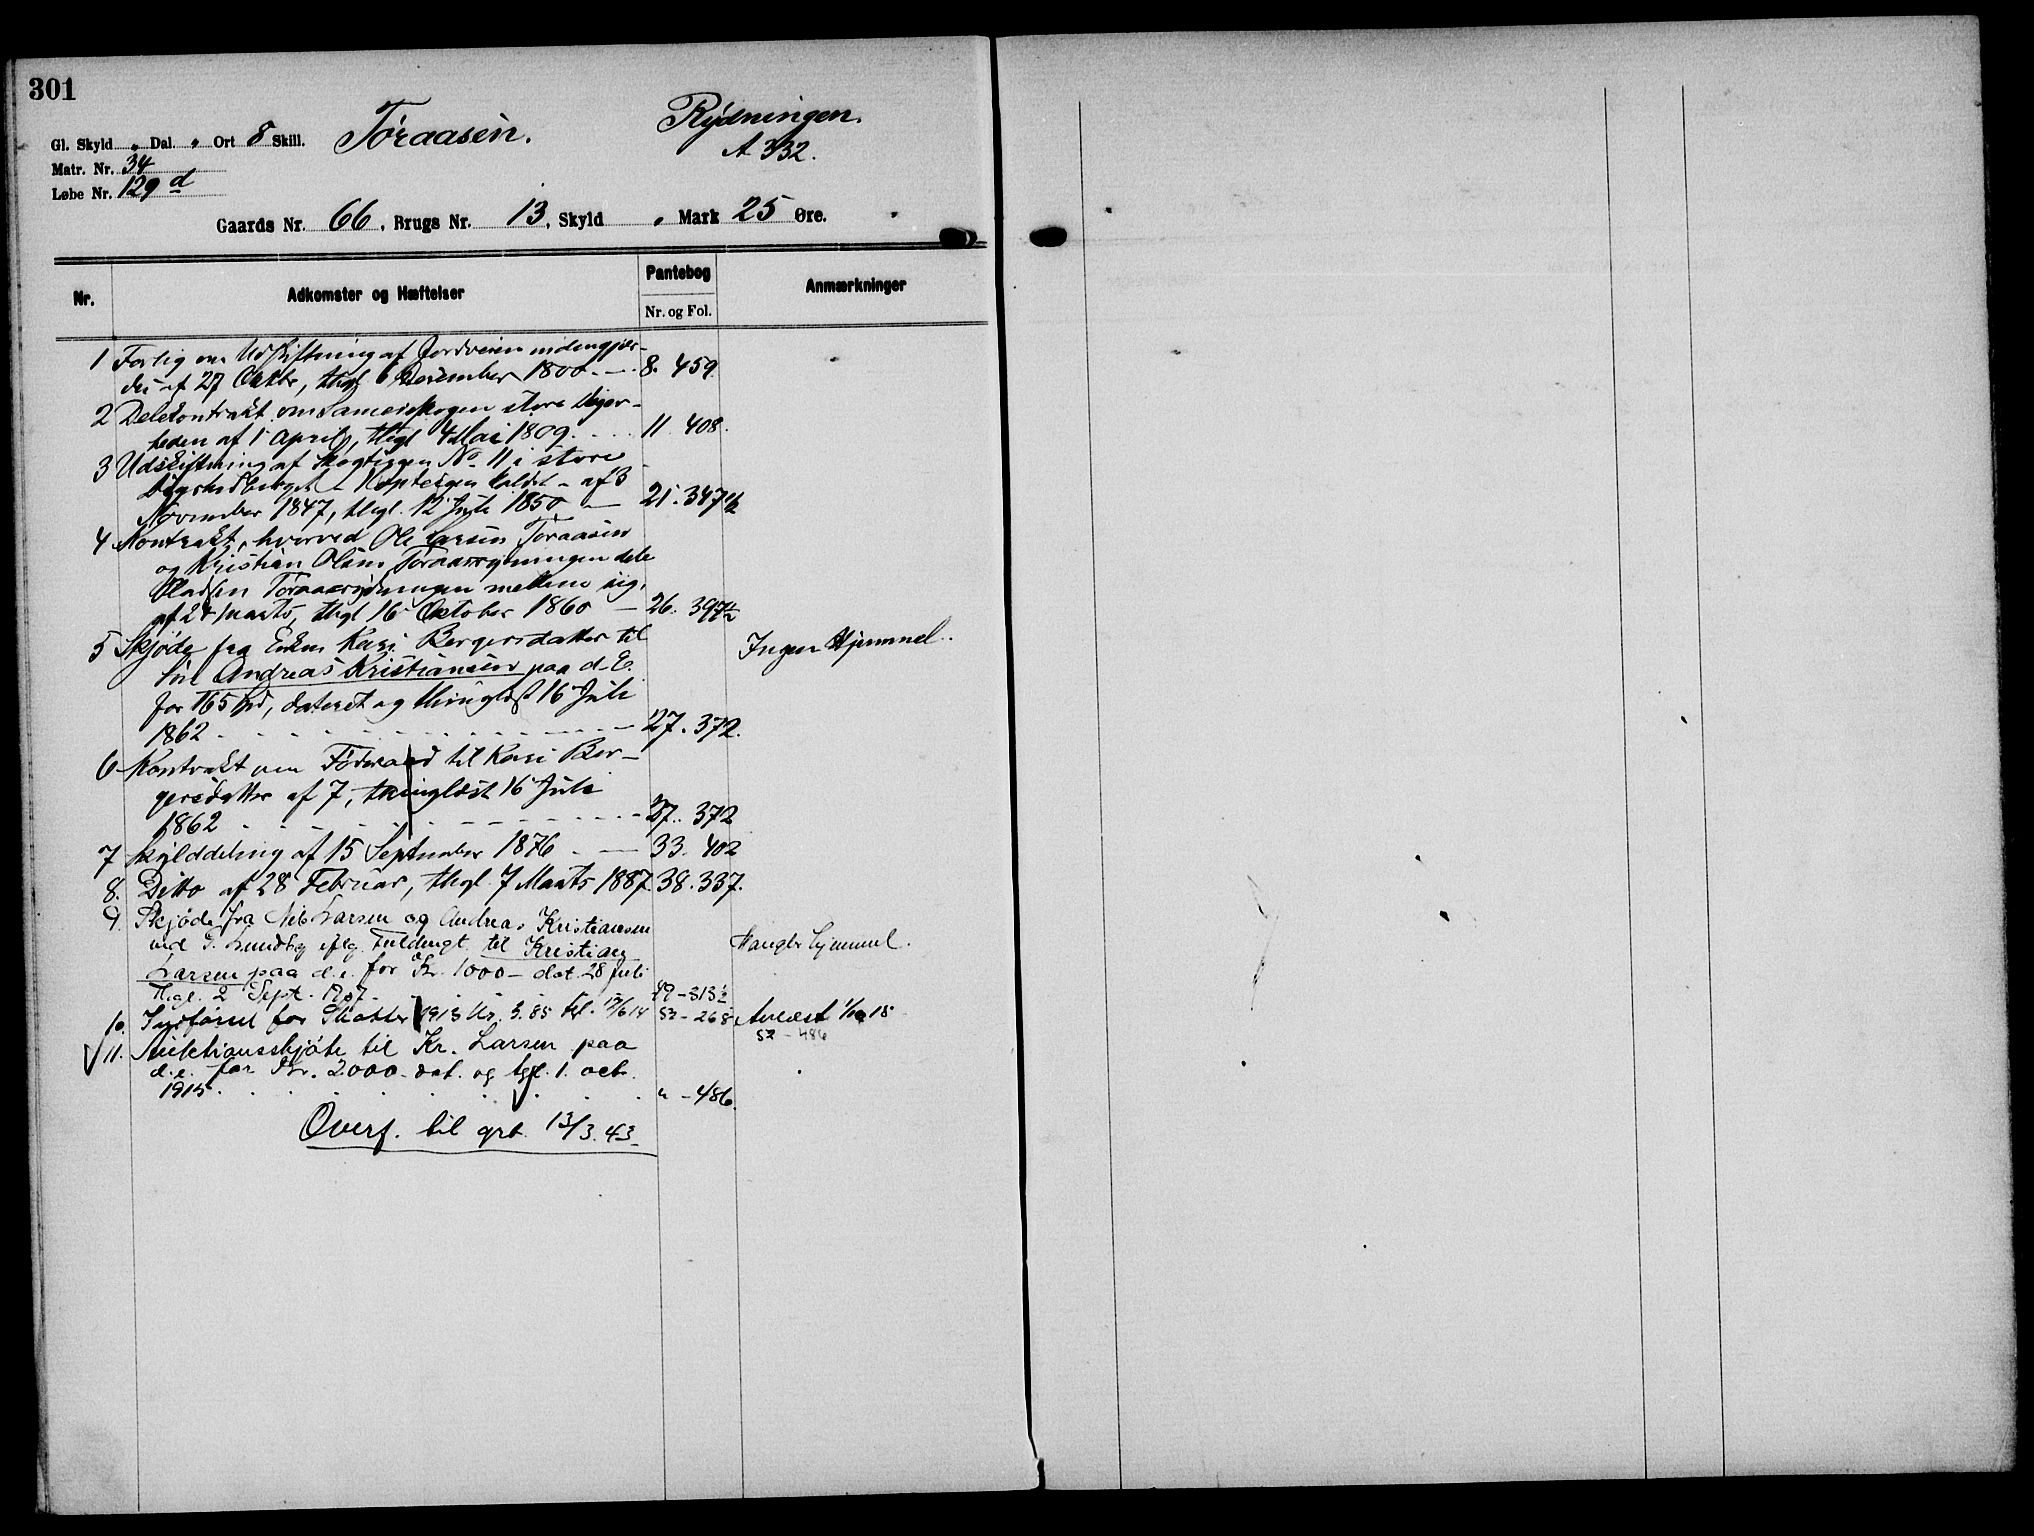 301
Gl. Skyld „ Dal. „ Ort 8 Skill. Toraasen. Rydningen.
A 332.
Matr. Nr. 34
Løbe Nr. 129 d
Gaards Nr. 66, Brugs Nr. 13, Skyld „ Mark 25 Øre.
Nr. Adkomster og Hæftelser Pantebog Anmærkninger
Nr. og Fol.
1 Forlig om Udskiftning af Jordveien indengjær-
det af 27 Oktbr, thgl 6 December 1800. — 8. 459
2 Delekontrakt om Sameieskogen store Diger-
heden af 1 April, thgl 4 Mai 1809. 11 408.
3 Udskiftning af Skogteigen No. 11 i store
kaldet - af 3
November 1847, thgl. 12 Juli 1850 — 21. 347 1/2
4 Kontrakt, hvorved Ole Larsen Toraasen
og Kristian Olsen Toraasrydningen dele
Pladsen Toraasrydningen mellem sig,
af 24 Marts, thgl 16 Oktober 1860 — 26. 397 1/2
5 Skjøde fra Enken Kari Bergersdatter til Ingen Hjemmel.
Andreas Kristiansen paa d. E.
for 165 Spd, dateret og thinglæst 16 Juli
1862 27. 372.
6 Kontrakt om Føderaad til Kari Ber-
gersdatter af 7, thinglæst 16 Juli
1862 27. 372
7 Skylddeling af 15 September 1876 — 33. 402
8. Ditto af 28 Februar, thgl. 7 Marts 1887. 38. 337.
9. Skjøde fra Nils Larsen og Andreas Kristiansen
ved G. Lundby iflg. Fuldmgt. til Kristian Mangler hjemmel.
Larsen paa d. e. for Kr. 1000 – dat. 28 Juli
thgl. 2 Sept. 1907. 49 – 313 1/2
10. Indførsel for Skatter 1913 Kr. 3.85 tgl. 12/6 14 52 – 268 Avlæst 1/10 15
52 – 486
11. Auktionsskjøte til Kr. Larsen paa
d. e. for Kr. 2000 – dat. og tgl. 1. oct.
1915. " – 486.
Overf. til grb. 13/3. 43